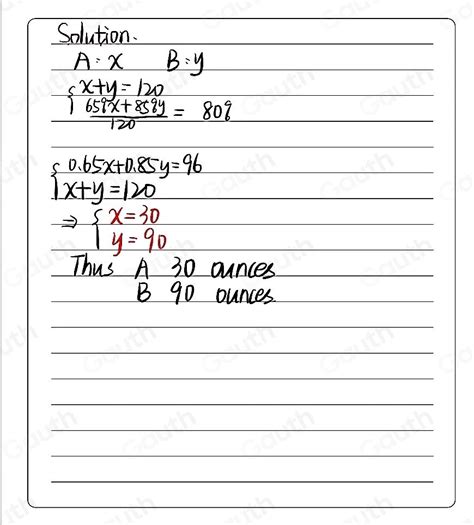 Solution.
A: x B: y
{ x+y=120
{ (65%x+85%y)/120 = 80%
{ 0.65x+0.85y=96
{ x+y=120
⇒ { x=30
{ y=90
Thus A 30 ounces
B 90 ounces